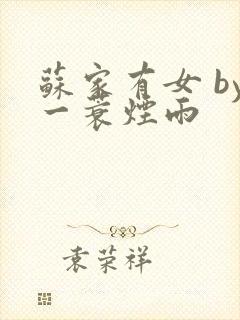 蘇家有女 by
一蓑煙雨
袁荣祥